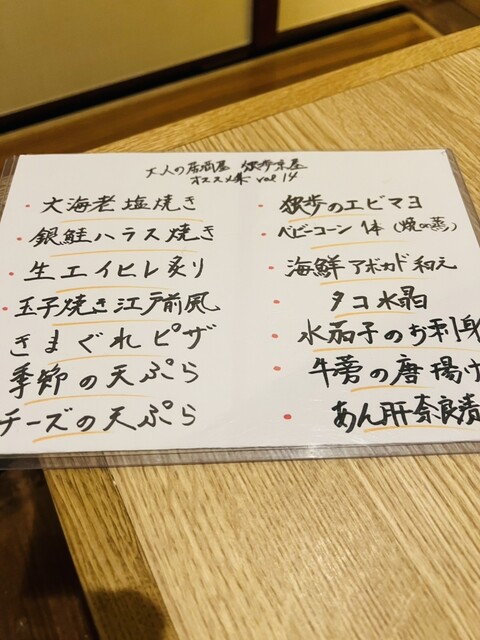 大人の居酒屋 独歩来屋
オススメ集 vol 14
・大海老塩焼き
・銀鮭ハラス焼き
・生エイヒレ炙り
・玉子焼き江戸前風
きまぐれピザ
季節の天ぷら
チーズの天ぷら
・独歩のエビマヨ
・ベビーコーン 1本 (焼or蒸)
・海鮮アボカド和え
・タコ水晶
・水茄子のお刺身
・牛蒡の唐揚げ
・あん肝奈良漬